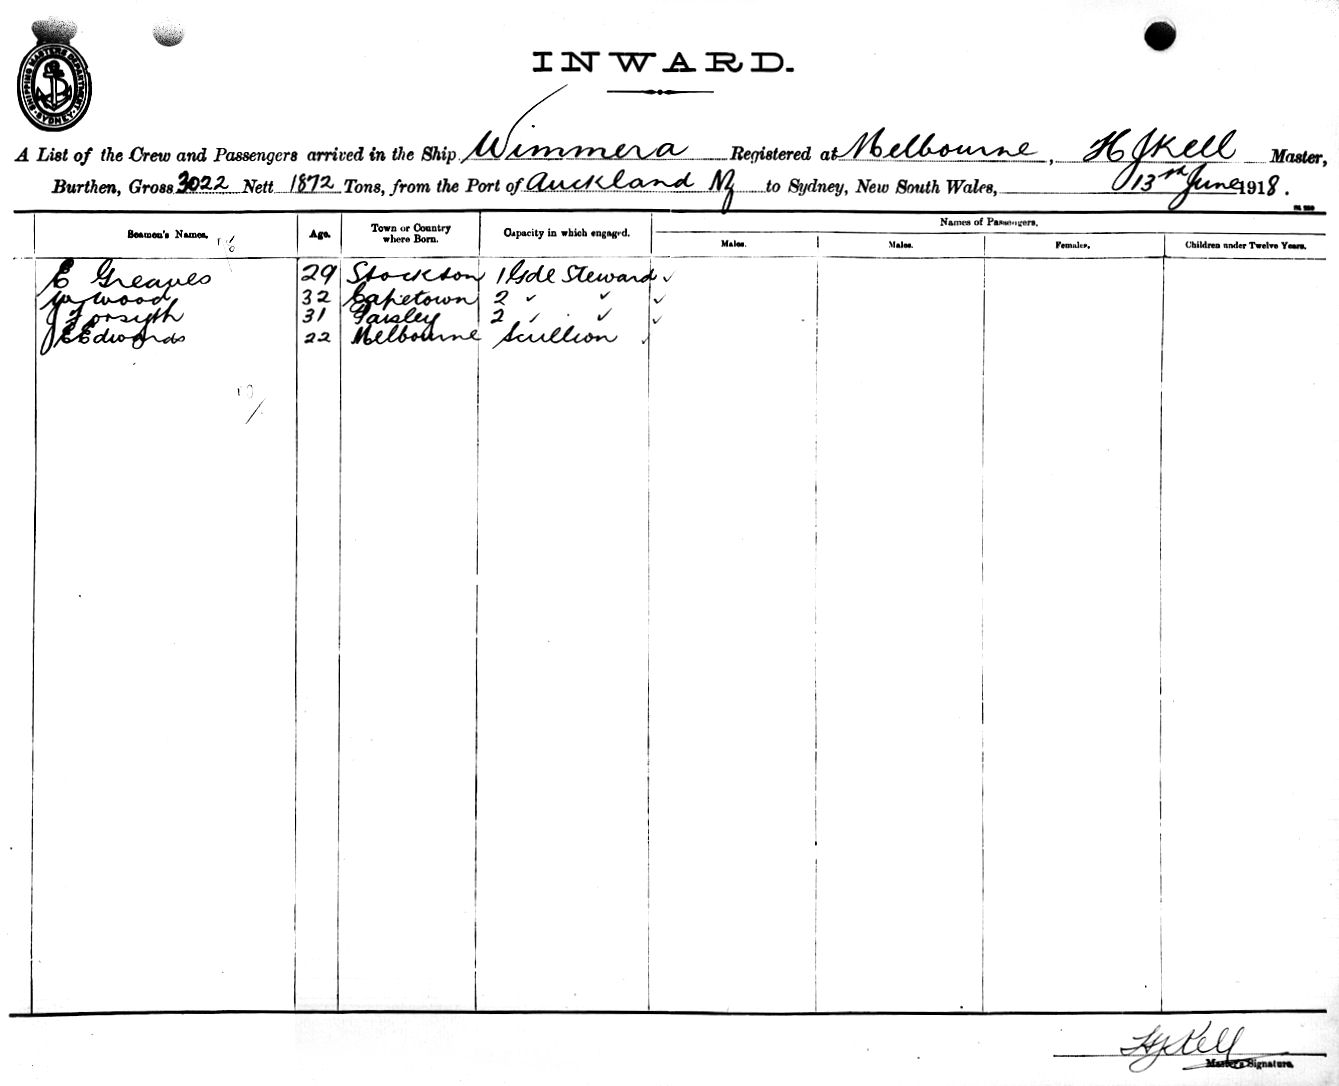 SHIPPING MASTER'S DEPARTMENT. SYDNEY.
INWARD.
A List of the Crew and Passengers arrived in the Ship Wimmera Registered at Melbourne, H J Kell Master,
Burthen, Gross 3022 Nett 1872 Tons, from the Port of Auckland NZ to Sydney, New South Wales, 13th June 1918.
Names of Passengers.
Seamen's Names. Age. Town or Country where Born. Capacity in which engaged. Males. Males. Females. Children under Twelve Years.
E Greaves 29 Stockton 1 Gde Steward ✓
Wm Wood 32 Capetown 2 ✓ ✓ ✓
J Forsyth 31 Paisley 2 ✓ ✓ ✓
J E Edwards 22 Melbourne Scullion ✓
H J Kell
Master's Signature.